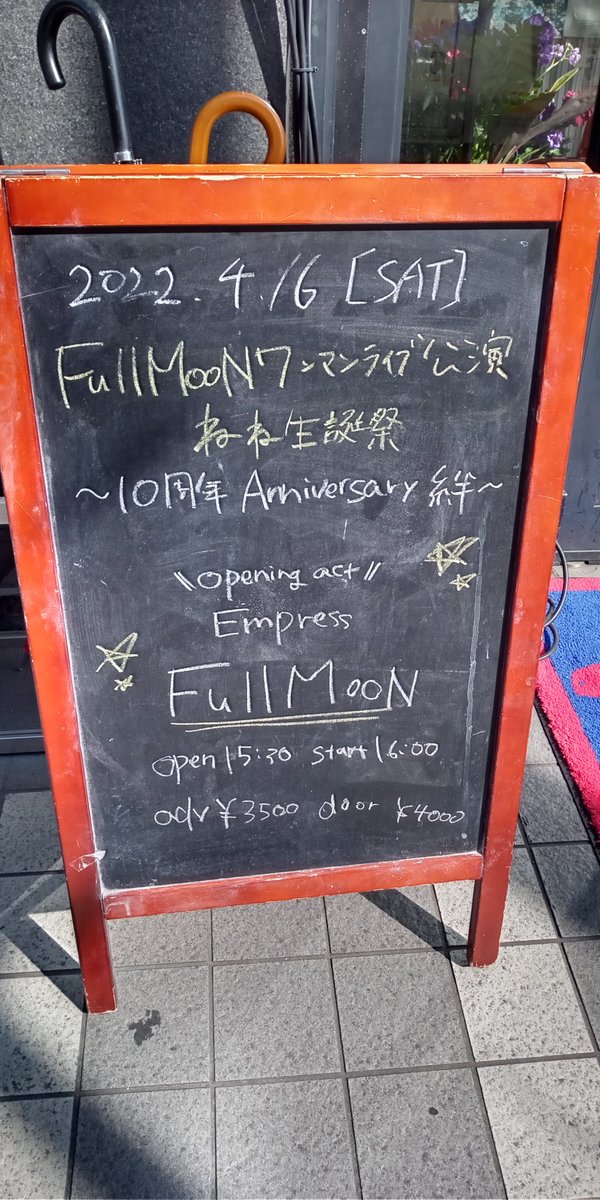 2022.4.16 [SAT]
FullMooNワンマンライブ公演
ねね生誕祭
～10周年 Anniversary 絆～
\\opening act//
Empress
FullMooN
open 15:30 start 16:00
adv ¥3500 door ¥4000